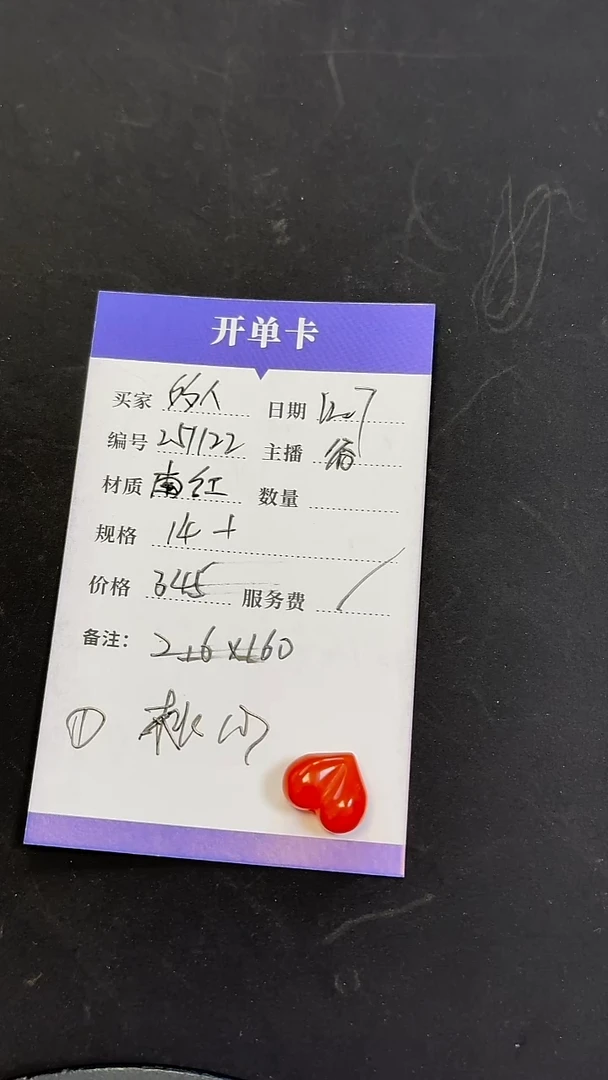 开单卡
买家 的人 日期 12.7
编号 257122 主播
材质 南红 数量
规格 14+
价格 345 服务费 /
备注: 2.16×160
①